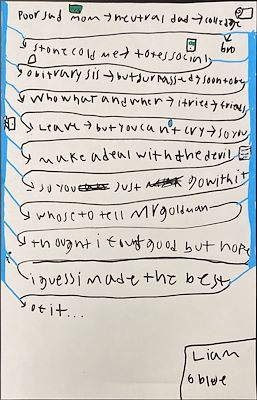 Poor sad mom → neutral dad → college
bro
stone cold me → tote social
obitrary sis → but dur passed y soon to be
who what and wher → i tried → friends
Leave → but you can't cry → so you
make a deal with the devil
so you just go with it
whose to tell Mr goldman
thought i could good but nope
i guess i made the best
of it...
Liam
6 blue